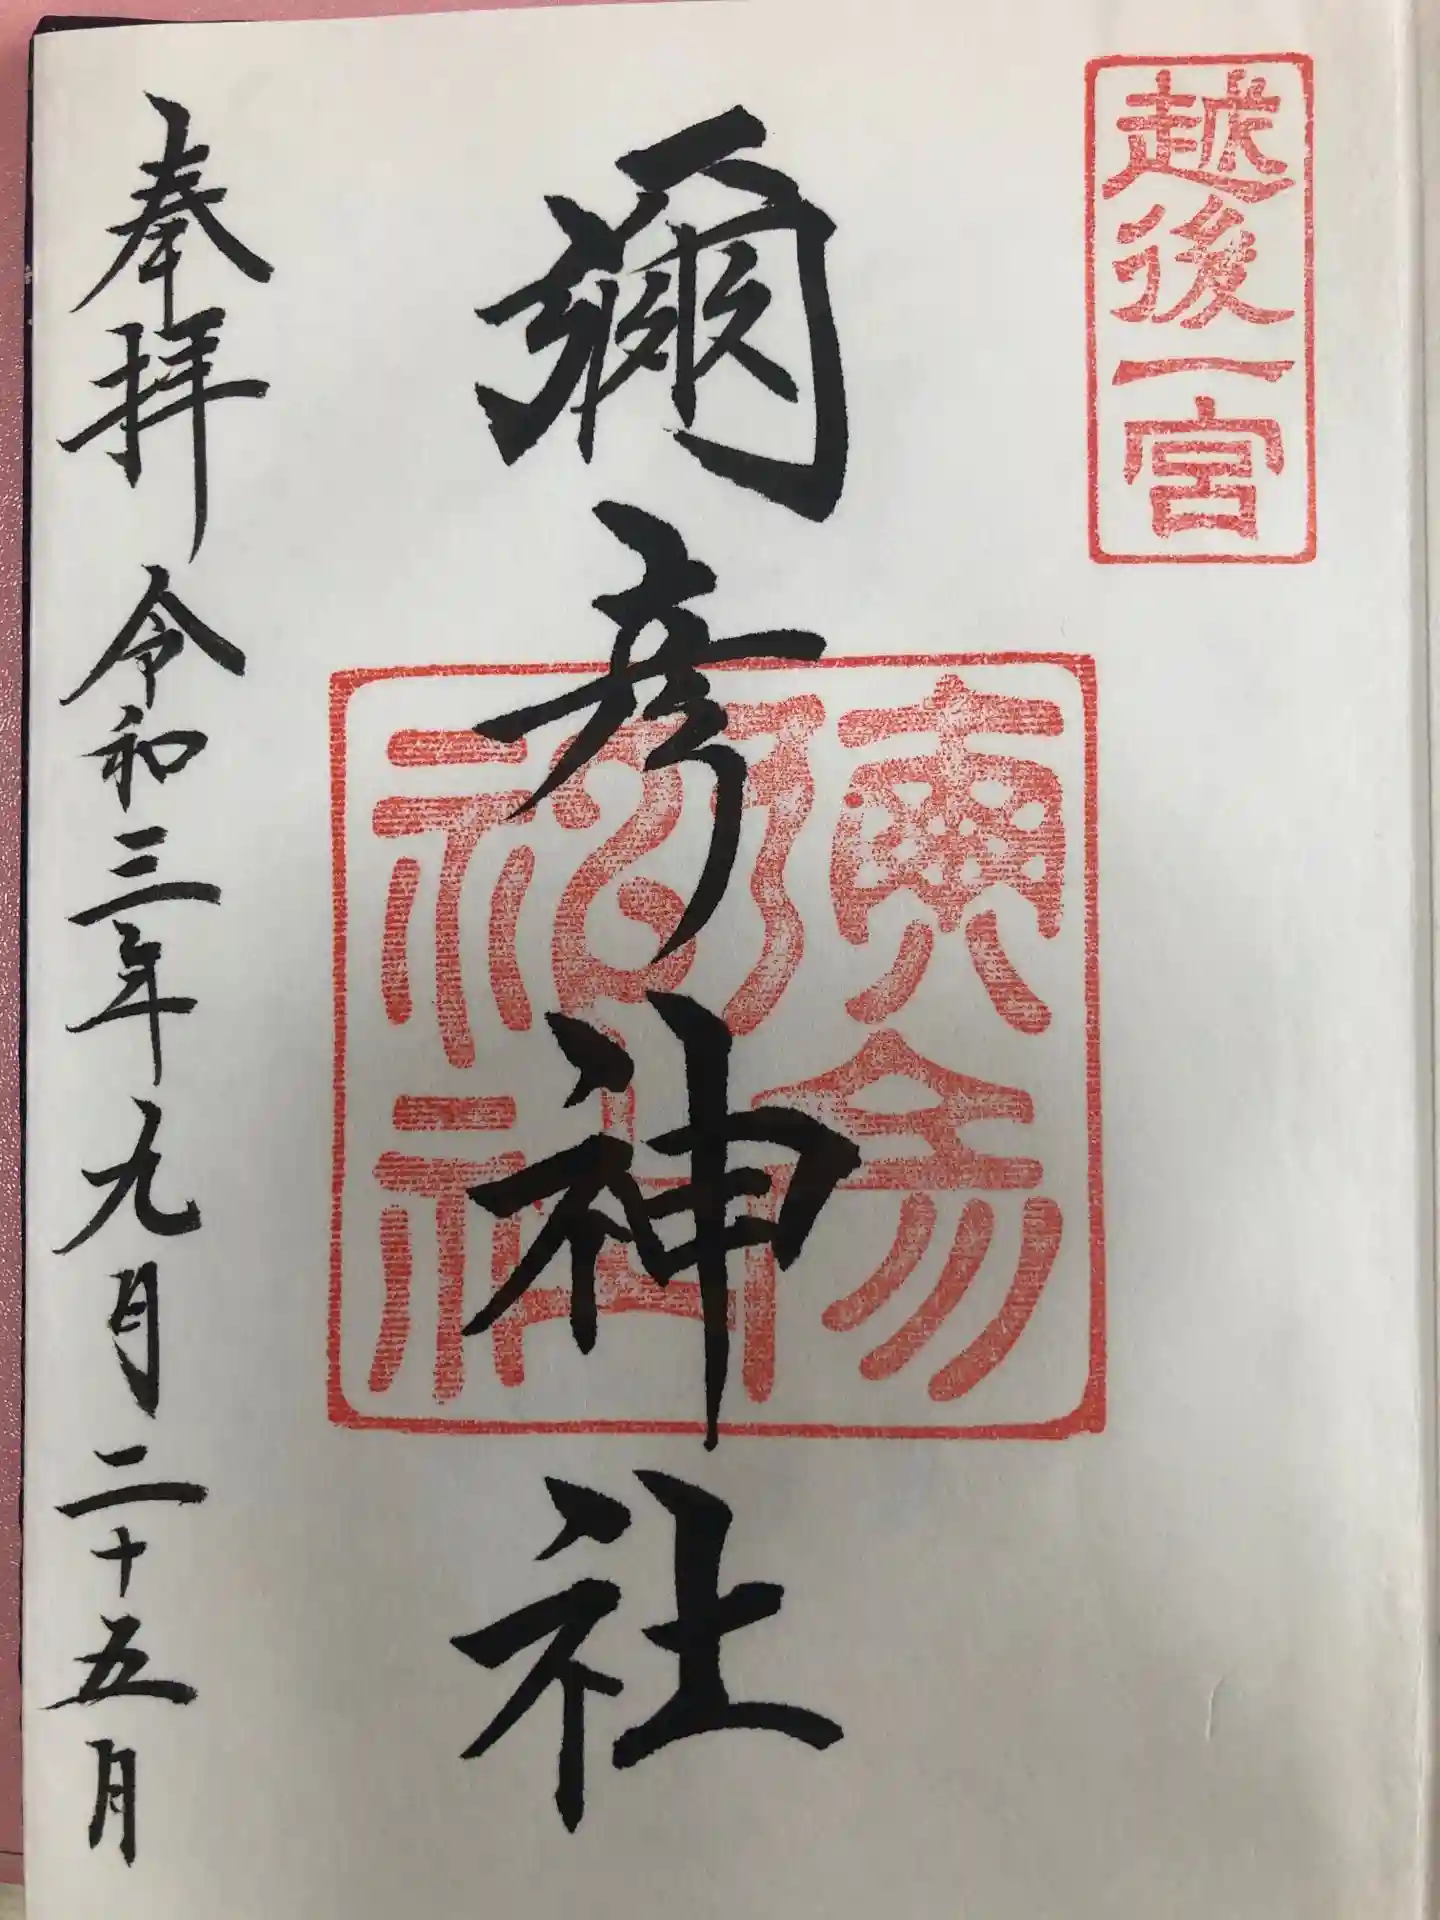 越後一宮
彌彦神社
彌彦神社
奉拝 令和三年九月二十五月